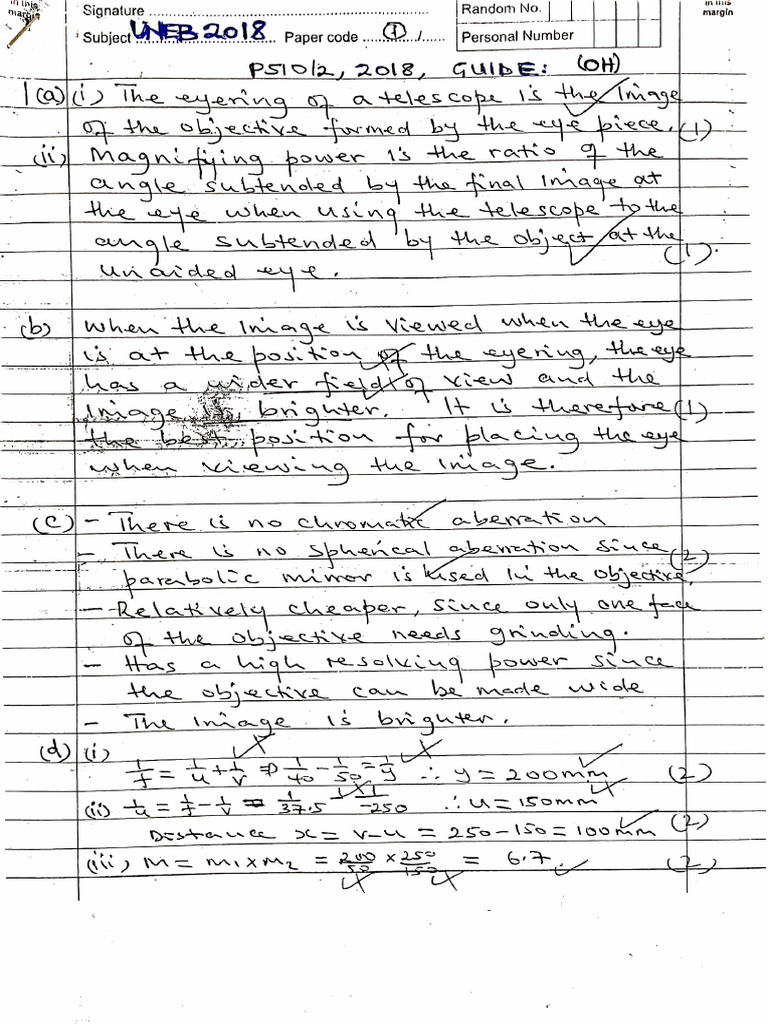 in this
margin
Signature
Random No.
in this
margin
Subject UNEB 2018 Paper code (1) /
Personal Number
P510/2, 2018, GUIDE: (OH)
1(a)(i) The eyering of a telescope is the image
of the objective formed by the eye piece. (1)
(ii) Magnifying power is the ratio of the
angle subtended by the final image at
the eye when using the telescope to the
angle subtended by the object at the
unaided eye. (1)
(b) When the image is viewed when the eye
is at the position of the eyering, the eye
has a wider field of view and the
image is brighter. It is therefore (1)
the best position for placing the eye
when viewing the image.
(c) - There is no chromatic aberration
- There is no spherical aberration since (2)
parabolic mirror is used in the objective.
- Relatively cheaper, since only one face
of the objective needs grinding.
- Has a high resolving power since
the objective can be made wide
- The image is brighter.
(d) (i)
1/f = 1/u + 1/v ⇒ 1/40 - 1/50 = 1/y ∴ y = 200mm (2)
(ii) 1/u = 1/f - 1/v = 1/37.5 - 1/-250 ∴ u = 150mm
Distance x = v-u = 250-150 = 100mm (2)
(iii) M = m1 x m2 = 200/50 x 250/150 = 6.7 (2)